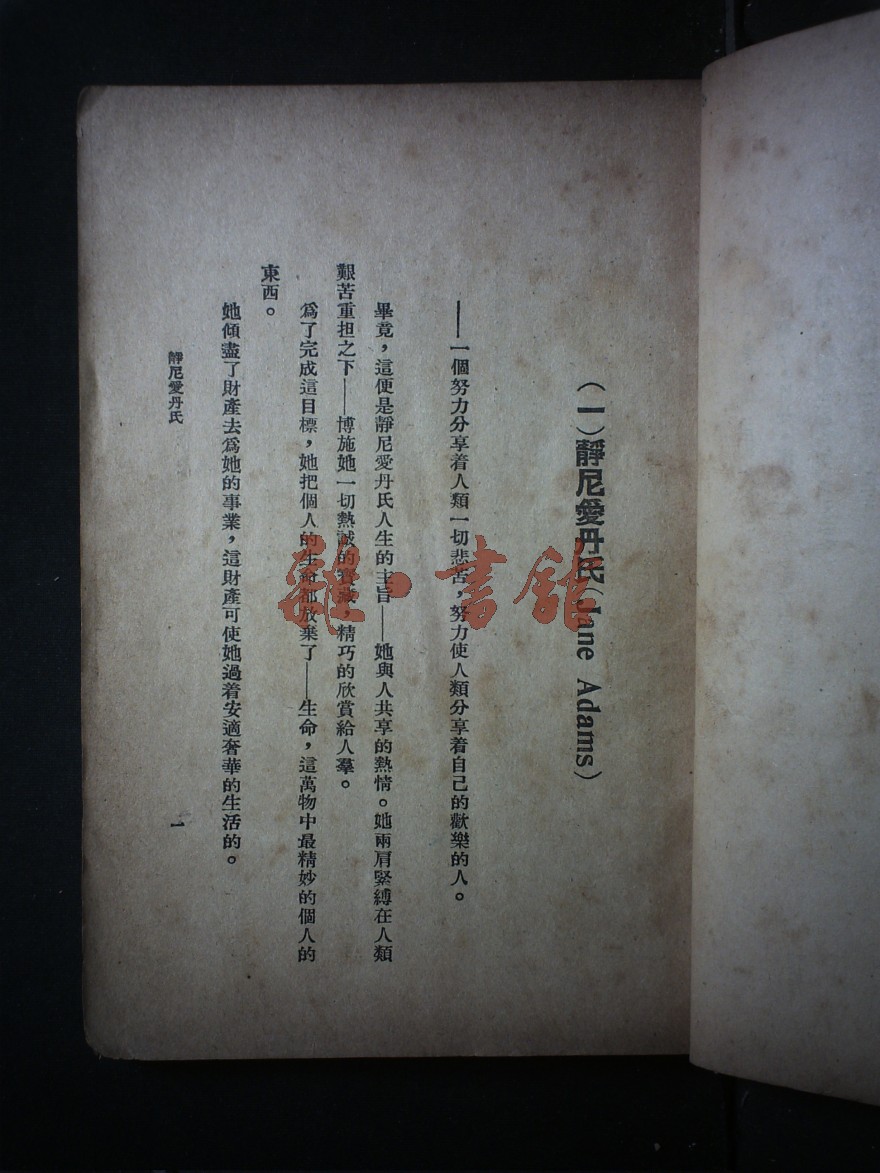 （一）靜尼愛丹氏（Jane Adams）
——一個努力分享着人類一切悲苦，努力使人類分享着自己的歡樂的人。
畢竟，這便是靜尼愛丹氏人生的主旨——她與人共享的熱情。她兩肩緊縛在人類
艱苦重担之下——博施她一切熱誠的寶藏，精巧的欣賞給人羣。
爲了完成這目標，她把個人的生命都放棄了——生命，這萬物中最精妙的個人的
東西。
她傾盡了財產去爲她的事業，這財產可使她過着安適奢華的生活的。
靜尼愛丹氏
一
雜·書館